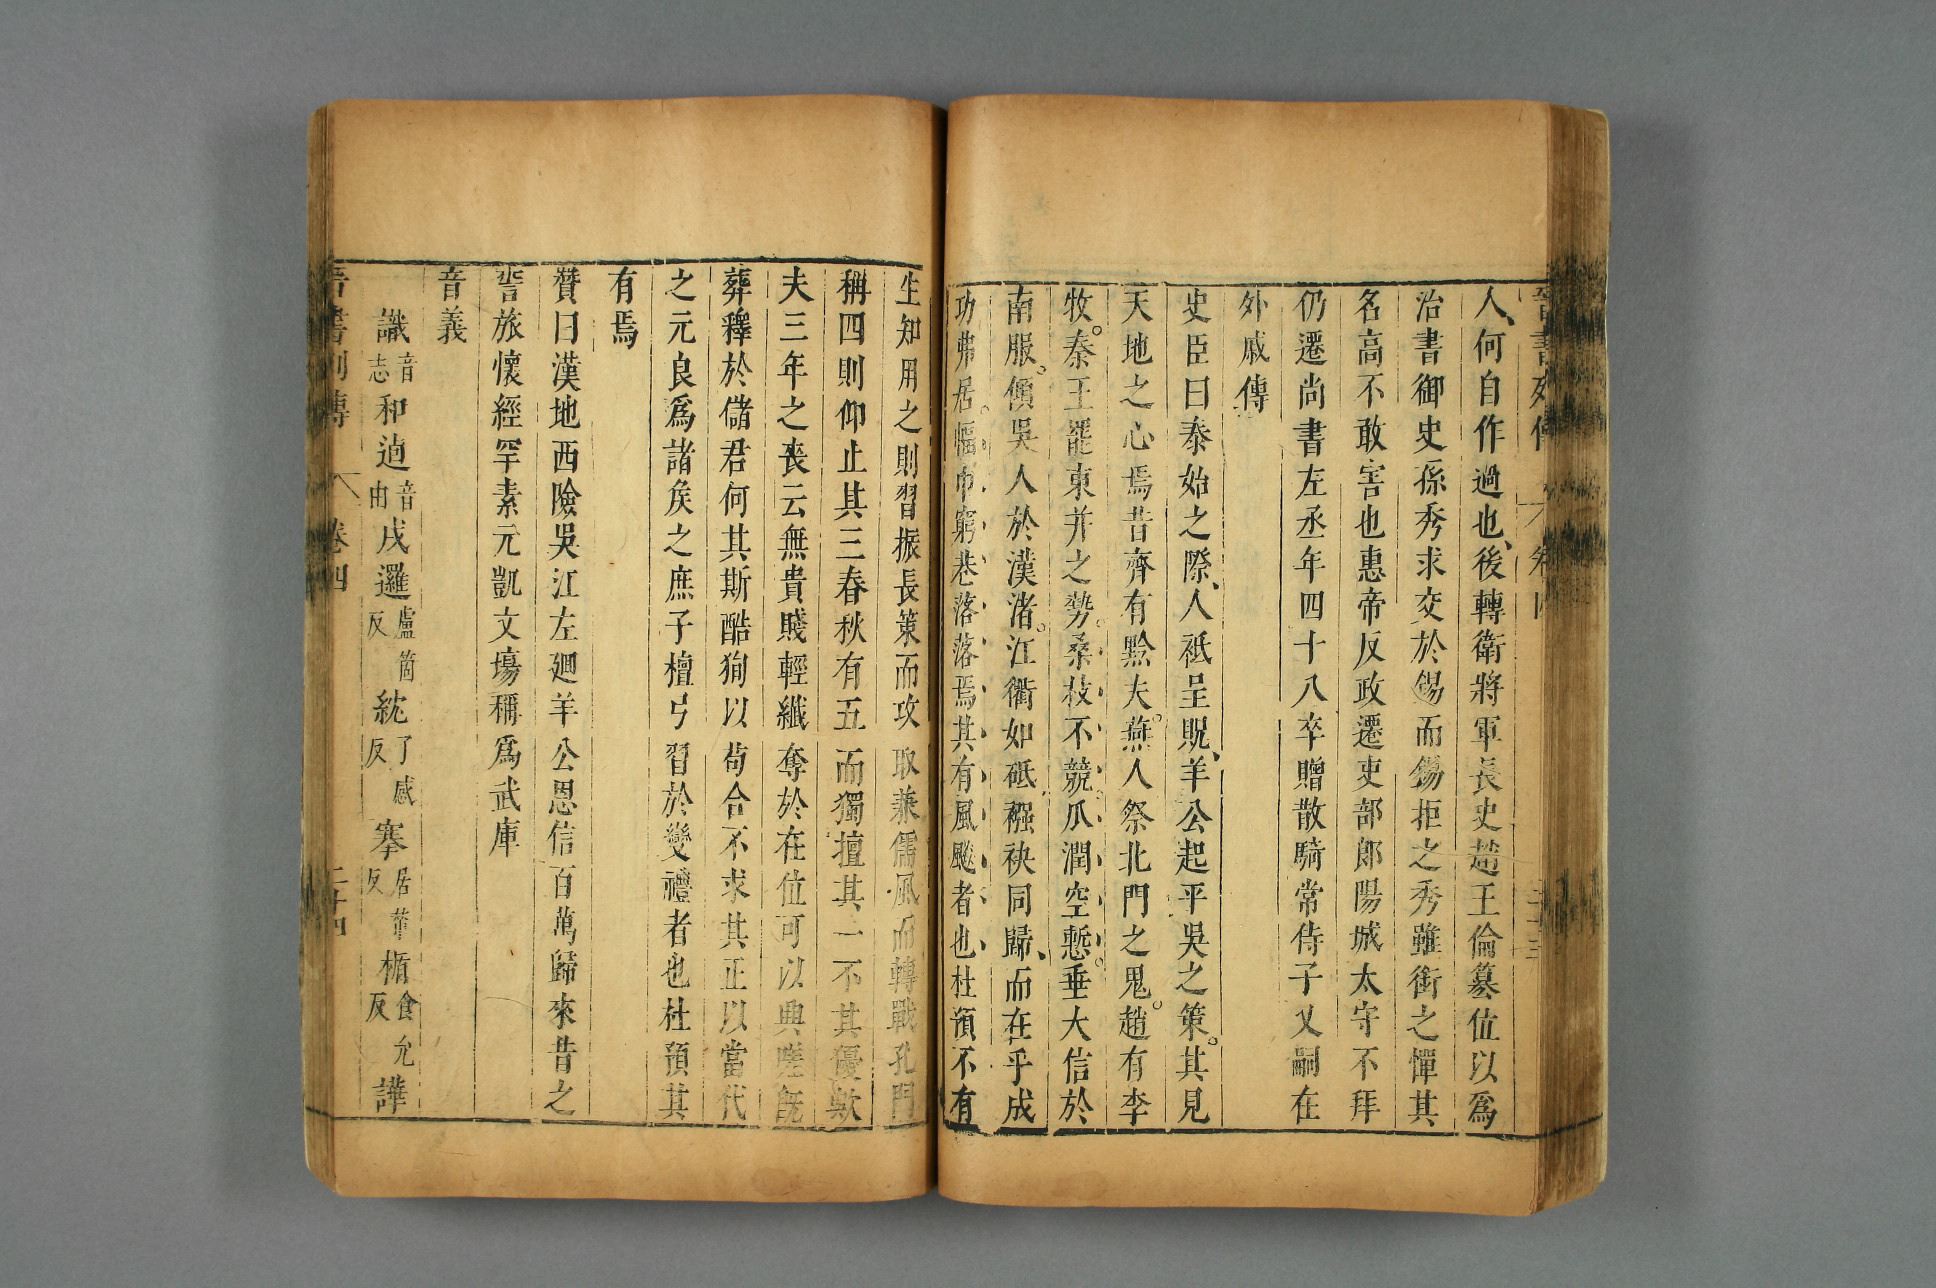 晉書列傳 卷四 二十三
人何自作過也後轉衛將軍長史趙王倫簒位以爲
治書御史孫秀求交於錫而錫拒之秀雖銜之憚其
名高不敢害也惠帝反政遷吏部郎陽城太守不拜
仍遷尚書左丞年四十八卒贈散騎常侍子乂嗣在
外戚傳
史臣曰泰始之際人祇呈貺羊公起平吳之策其見
天地之心焉昔齊有黔夫燕人祭北門之鬼趙有李
牧秦王罷東并之勢桑枝不競瓜潤空慙垂大信於
南服傾吳人於漢渚江衢如砥襁袂同歸而在乎成
功弗居幅巾窮巷落落焉其有風飈者也杜預不有
生知用之則習振長策而攻取兼儒風而轉戰孔門
稱四則仰止其三春秋有五而獨擅其一不其優歟
夫三年之喪云無貴賤輕纖奪於在位可以興嗟旣
葬釋於儲君何其斯酷狥以苟合不求其正以當代
之元良爲諸矦之庶子檀弓習於變禮者也杜預其
有焉
贊曰漢地西險吳江左廻羊公恩信百萬歸來昔之
誓旅懷經罕素元凱文場稱爲武庫
音義
識音志和逌音由戍邏盧箇反紞了感反搴居輦反楯食允反譁
晉書列傳 卷四 二十四